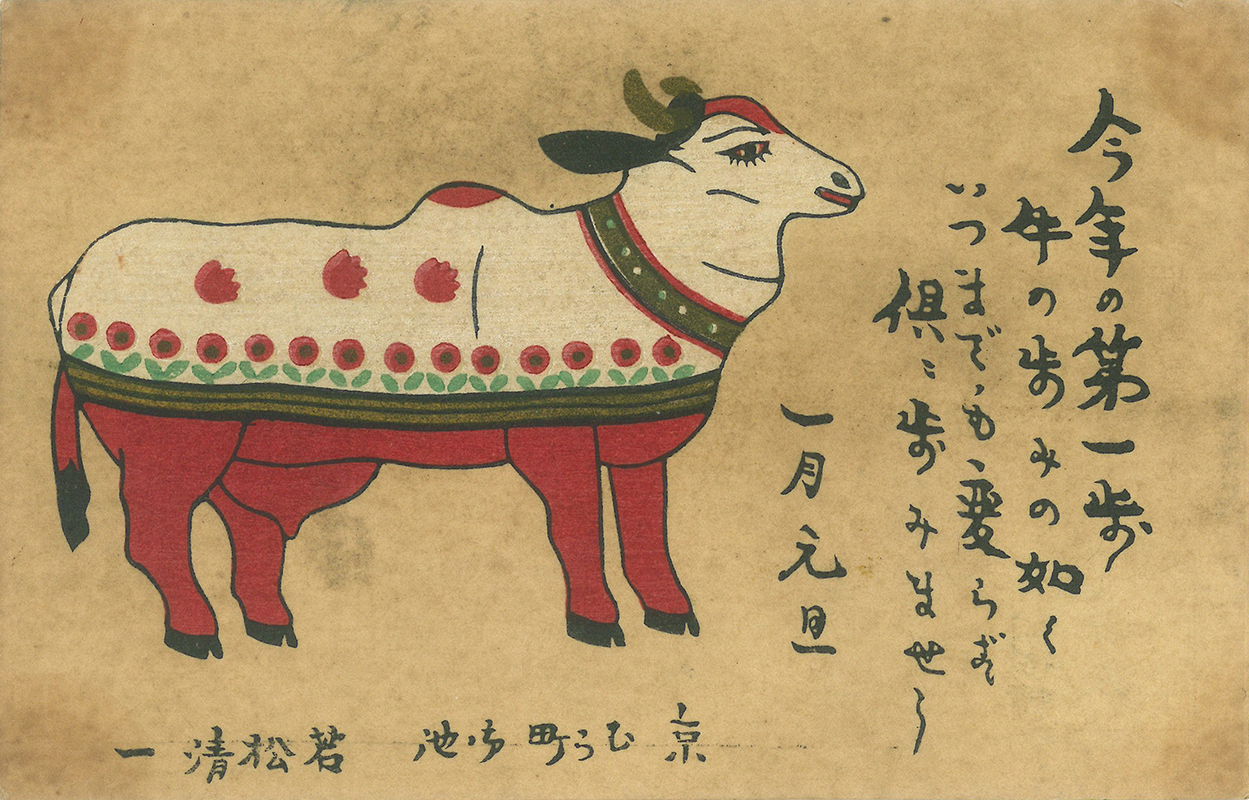 今年の第一歩
牛の歩みの如く
いつまでも変らず
倶ニ歩みませう
一月元旦
京 むろ町御池 若松清一